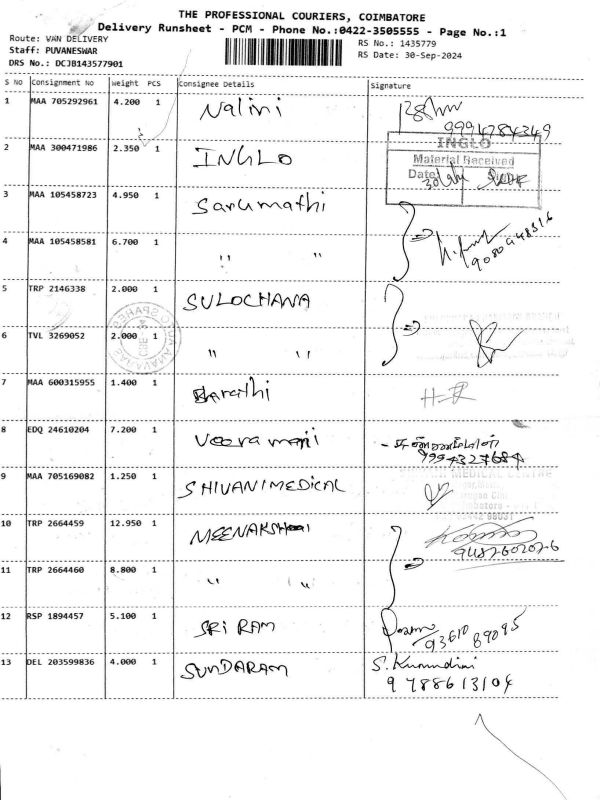 THE PROFESSIONAL COURIERS, COIMBATORE
Delivery Runsheet - PCM - Phone No.:0422-3505555 - Page No.:1
Route: VAN DELIVERY
Staff: PUVANESWAR
DRS No.: DCJB143577901
RS No.: 1435779
RS Date: 30-Sep-2024
S No Consignment No Weight PCS Consignee Details Signature
1 MAA 705292961 4.200 1 Nalini
9994784349
2 MAA 300471986 2.350 1 INGLO
INGLO
Material Received
Date
3 MAA 105458723 4.950 1 Sarumathi
4 MAA 105458581 6.700 1 " "
9080948516
5 TRP 2146338 2.000 1 SULOCHANA
6 TVL 3269052 2.000 1 " "
7 MAA 600315955 1.400 1 Barathi
8 EDQ 24610204 7.200 1 Veeramani
9994327684
9 MAA 705169082 1.250 1 SHIVANI MEDICAL
MEDICAL CENTRE
10 TRP 2664459 12.950 1 MEENAKSHI
9487602026
11 TRP 2664460 8.800 1 " "
12 RSP 1894457 5.100 1 SRI RAM
93610 89095
13 DEL 203599836 4.000 1 SUNDARAM S. Kumudini
9788613104